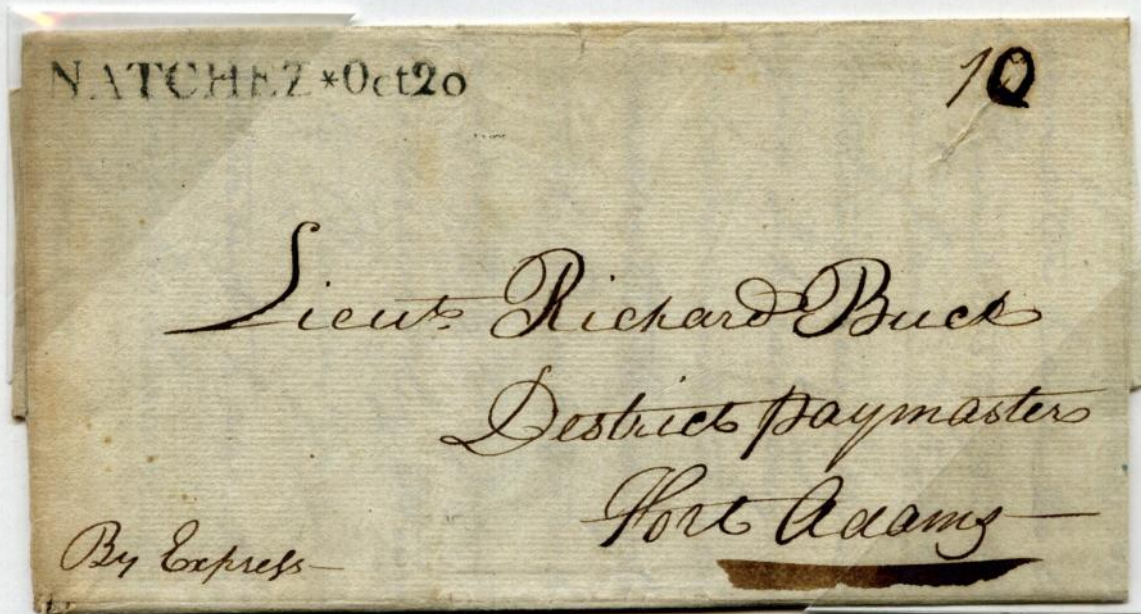 NATCHEZ *Oct 20
10
Lieut. Richard Buck
District paymaster
Fort Adams
By Express